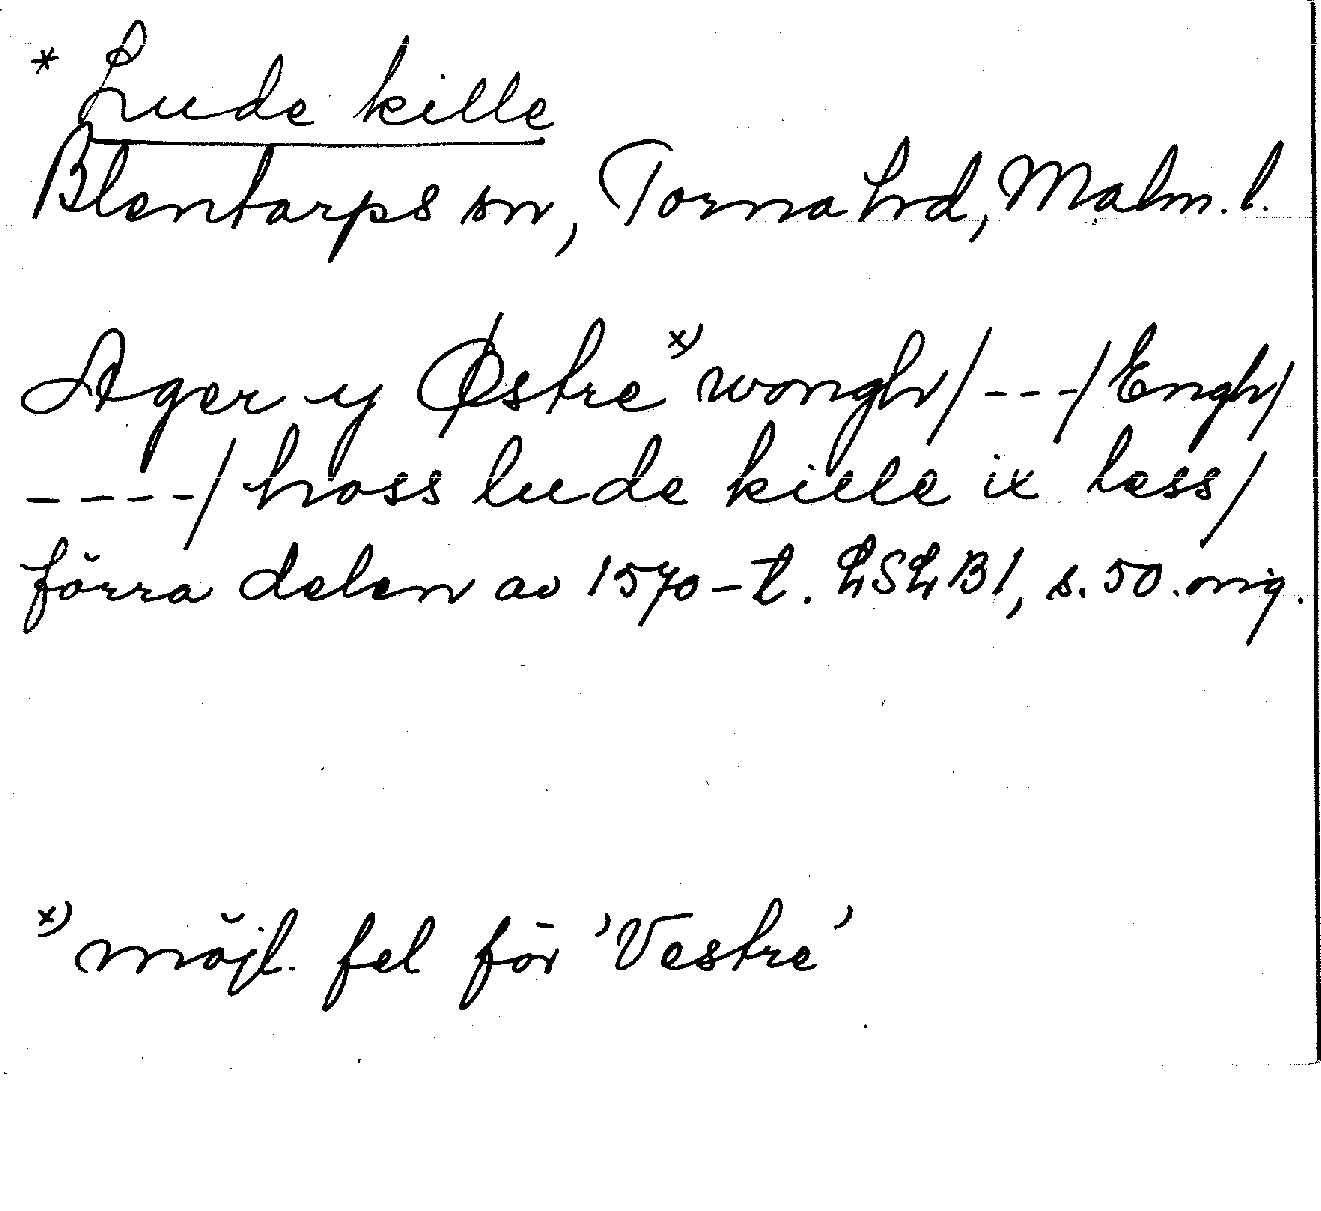 * Lude kille
Blentarps sn, Torna hrd, Malm. l.
Ager y Østre x) wongh/---/Engh/
----/hoss lude kielle ix less/
förra delen av 1570-t. LSLB1, s. 50. orig.
x) möjl. fel för 'Vestre'